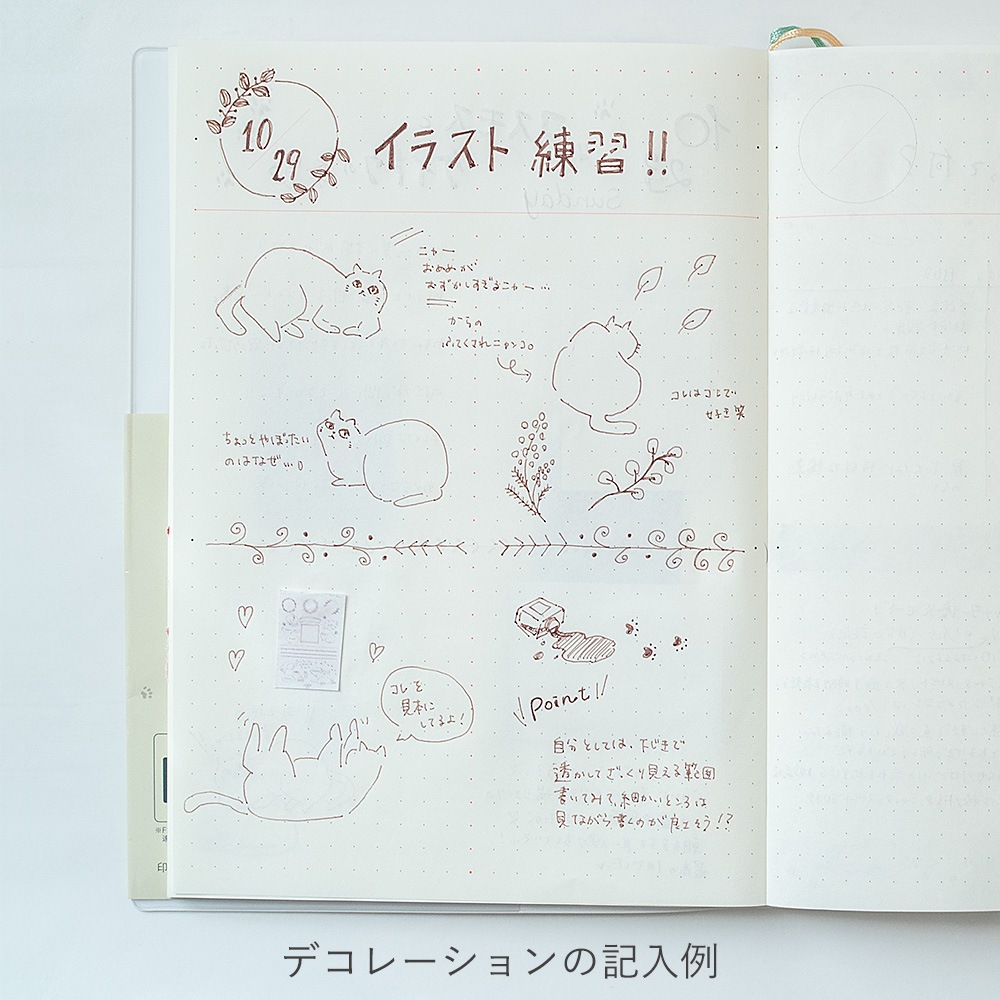 10
29
イラスト 練習!!
ニャー
おめめが
むずかしすぎるニャー…
からの
ふてくされニャンコ。
コレはコレで
好き 笑
ちょっとやぼったい
のはなぜ…。
コレを
見本に
してるよ!
Point!
自分としては、下じきで
透かしてざっくり見える範囲
書いてみて、細かいところは
見ながら書くのが良さそう!?
Sunday
印
デコレーションの記入例